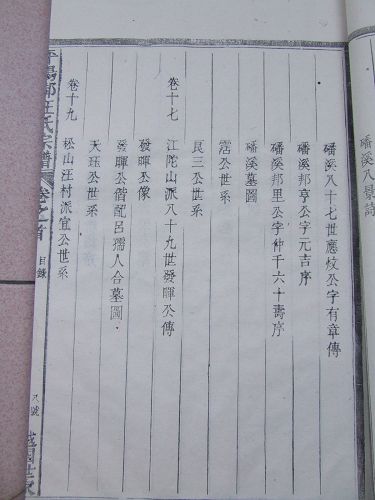 磻溪八景詩
磻溪八十七世應效公字有章傳
磻溪邦亨公字元吉序
磻溪邦里公字仲千六十壽序
磻溪墓圖
霑公世系
良三公世系
卷十七
江陀山派八十九世發暉公傳
發暉公像
發暉公偕配呂孺人合墓圖
天珏公世系
卷十九
松山汪村派宜公世系
平陽郡汪氏宗譜
卷之首
目錄
八號
越國世家